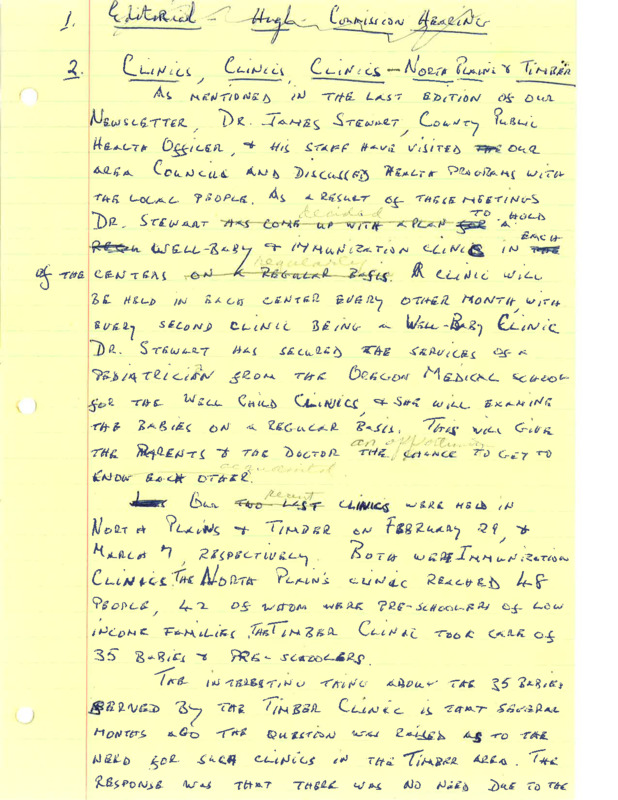 1. Editorial - Hugh - Commission Hearing
2. Clinics, Clinics, Clinics - North Plains & Timber
As mentioned in the last edition of our
Newsletter, Dr. James Stewart, County Public
Health Officer, & his staff have visited the our
area Councils and discussed health programs with
the local people. As a result of these meetings
decided
Dr. Stewart has come up with a plan for to hold a
Well-Baby & immunization clinic in the each
regularly
of the centers on a regular basis. A clinic will
be held in each center every other month, with
every second clinic being a Well-Baby Clinic
Dr. Stewart has secured the services of a
pediatrician from the Oregon Medical School
for the Well Child Clinics, & she will examine
the babies on a regular basis. This will give
an opportunity
the parents & the doctor the chance to get to
acquainted
know each other.
Our two last recent clinics were held in
North Plains & Timber on February 29, &
March 7, respectively. Both were Immunization
Clinics. The North Plains clinic reached 48
people, 42 of whom were pre-schoolers of low
income families. The Timber Clinic took care of
35 babies & pre-schoolers.
The interesting thing about the 35 babies
served by the Timber Clinic is that several
months ago the question was raised as to the
need for such clinics in the Timber area. The
response was that there was no need due to the